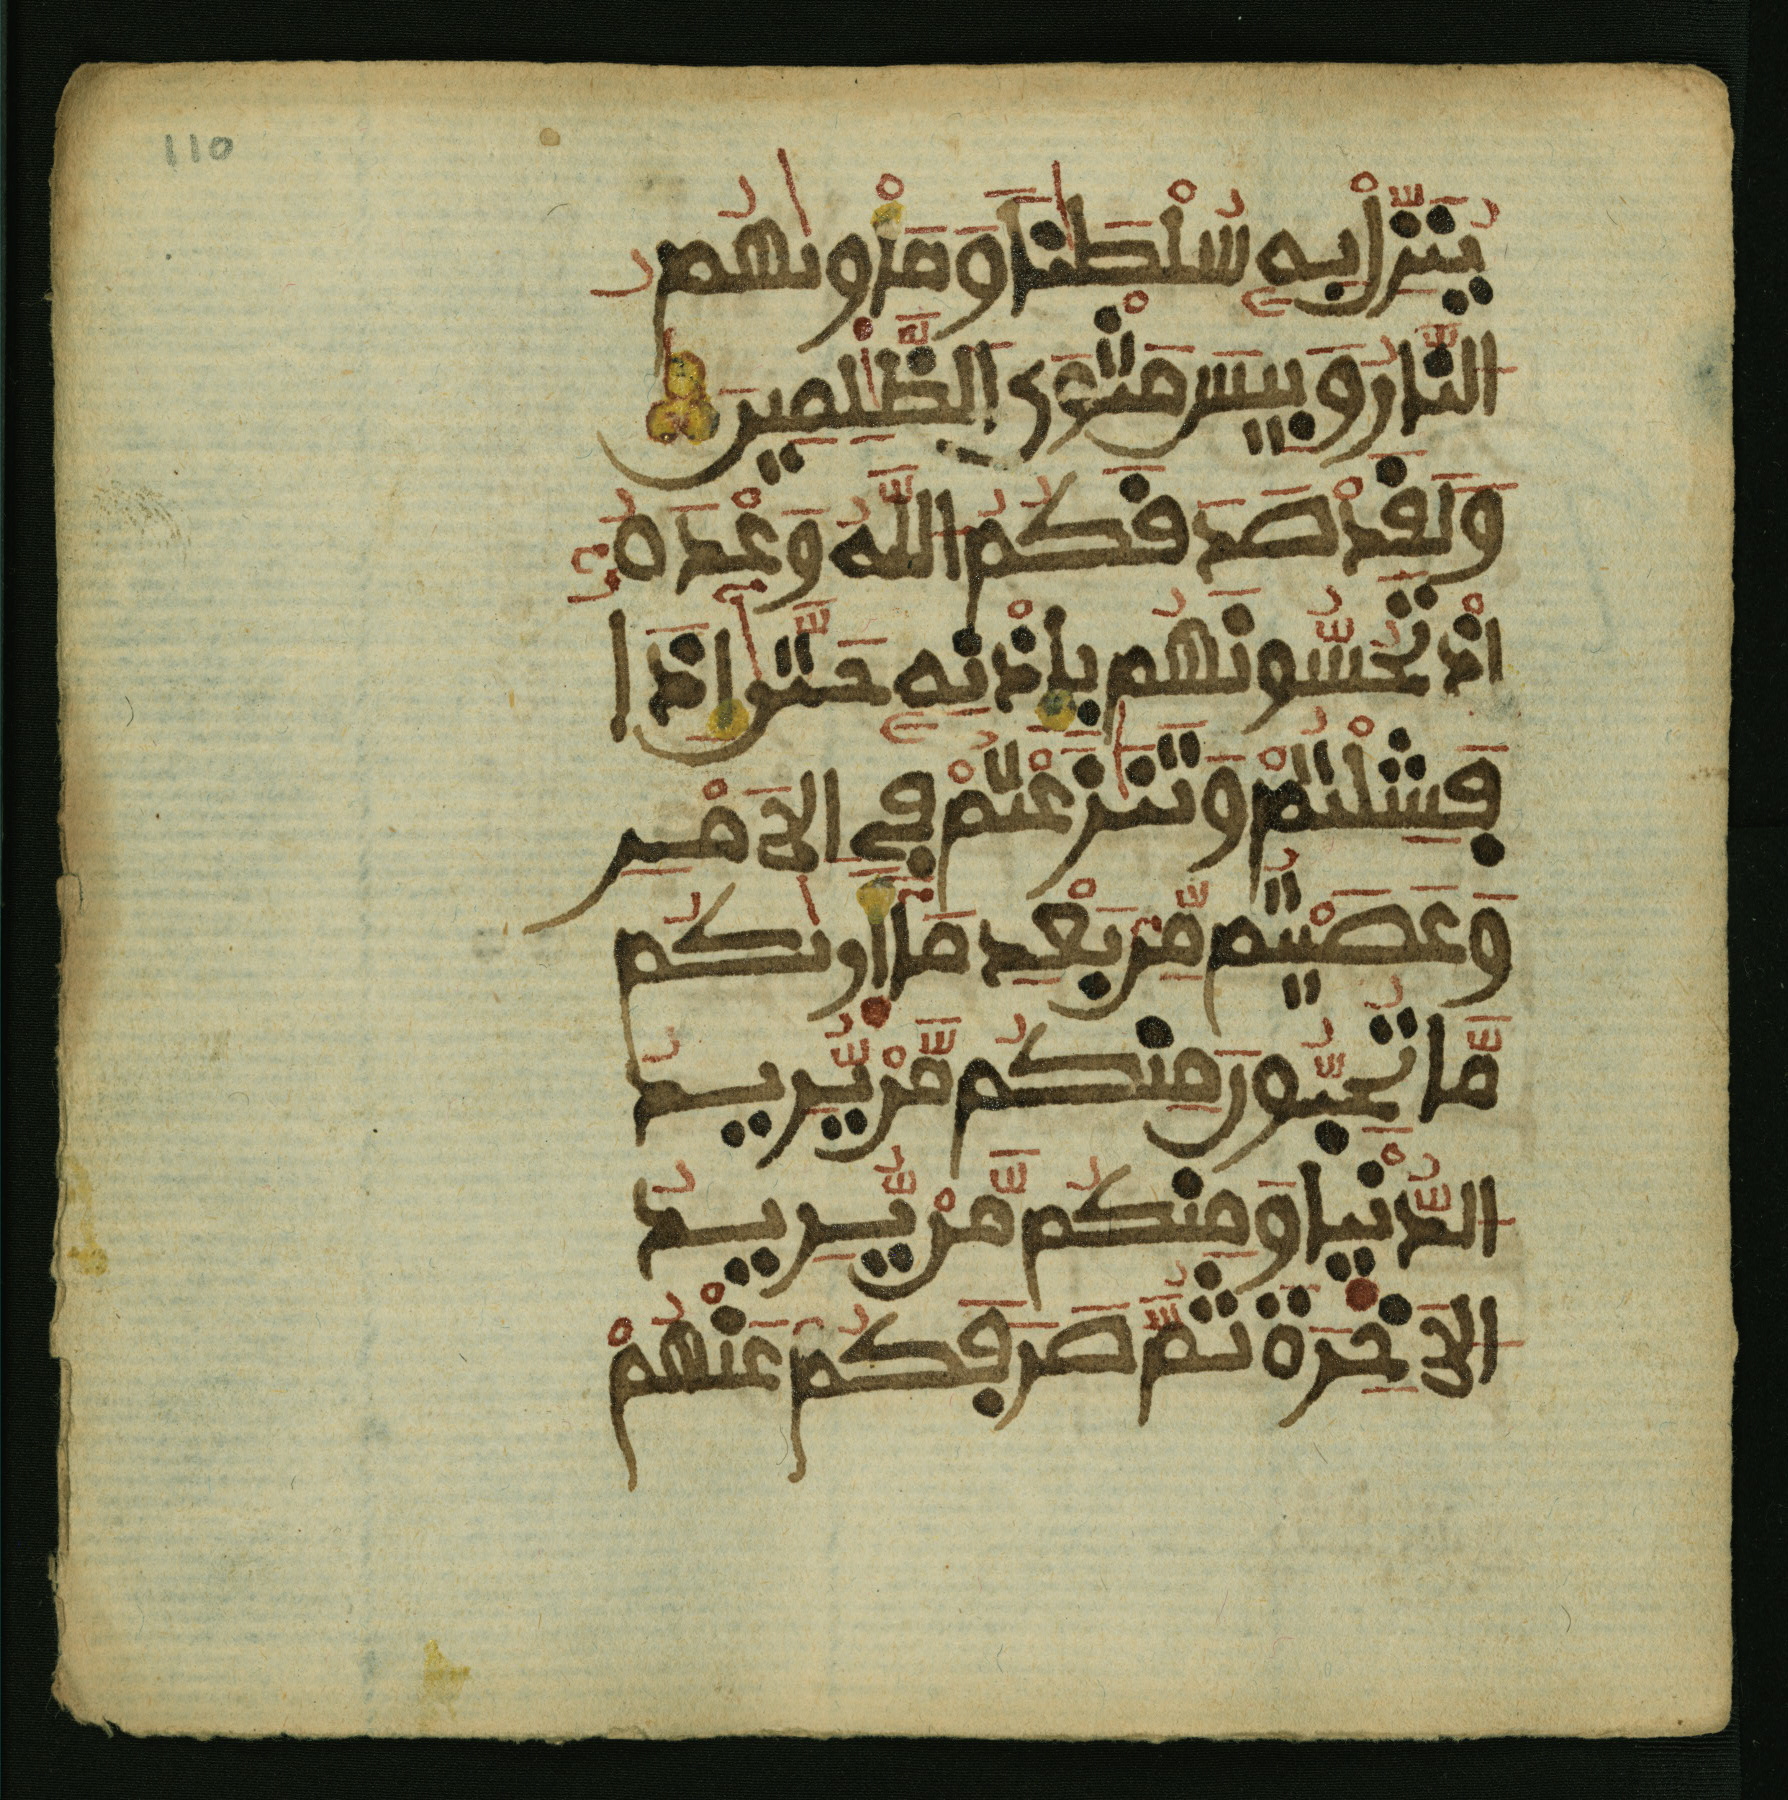 110
يُنَزِّلْ بِهِۦ سُلْطَٰنًا وَمَأْوَىٰهُمُ
النَّارُ وَبِيسَ مَثْوَى الظَّٰلِمِينَ
وَلَقَدْ صَدَقَكُمُ اللَّهُ وَعْدَهُۥٓ
إِذْ تَحُسُّونَهُم بِإِذْنِهِۦ حَتَّىٰٓ إِذَا
فَشِلْتُمْ وَتَنَٰزَعْتُمْ فِي الَامْرِ
وَعَصَيْتُم مِّنۢ بَعْدِ مَآ أَرَىٰكُم
مَّا تُحِبُّونَ مِنكُم مَّنْ يُّرِيدُ
الدُّنْيَا وَمِنكُم مَّنْ يُّرِيدُ
الَاخِرَةَ ثُمَّ صَرَفَكُمْ عَنْهُمْ